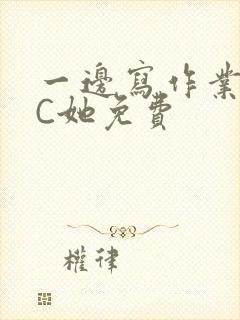 一邊寫作業
C她免費
權律